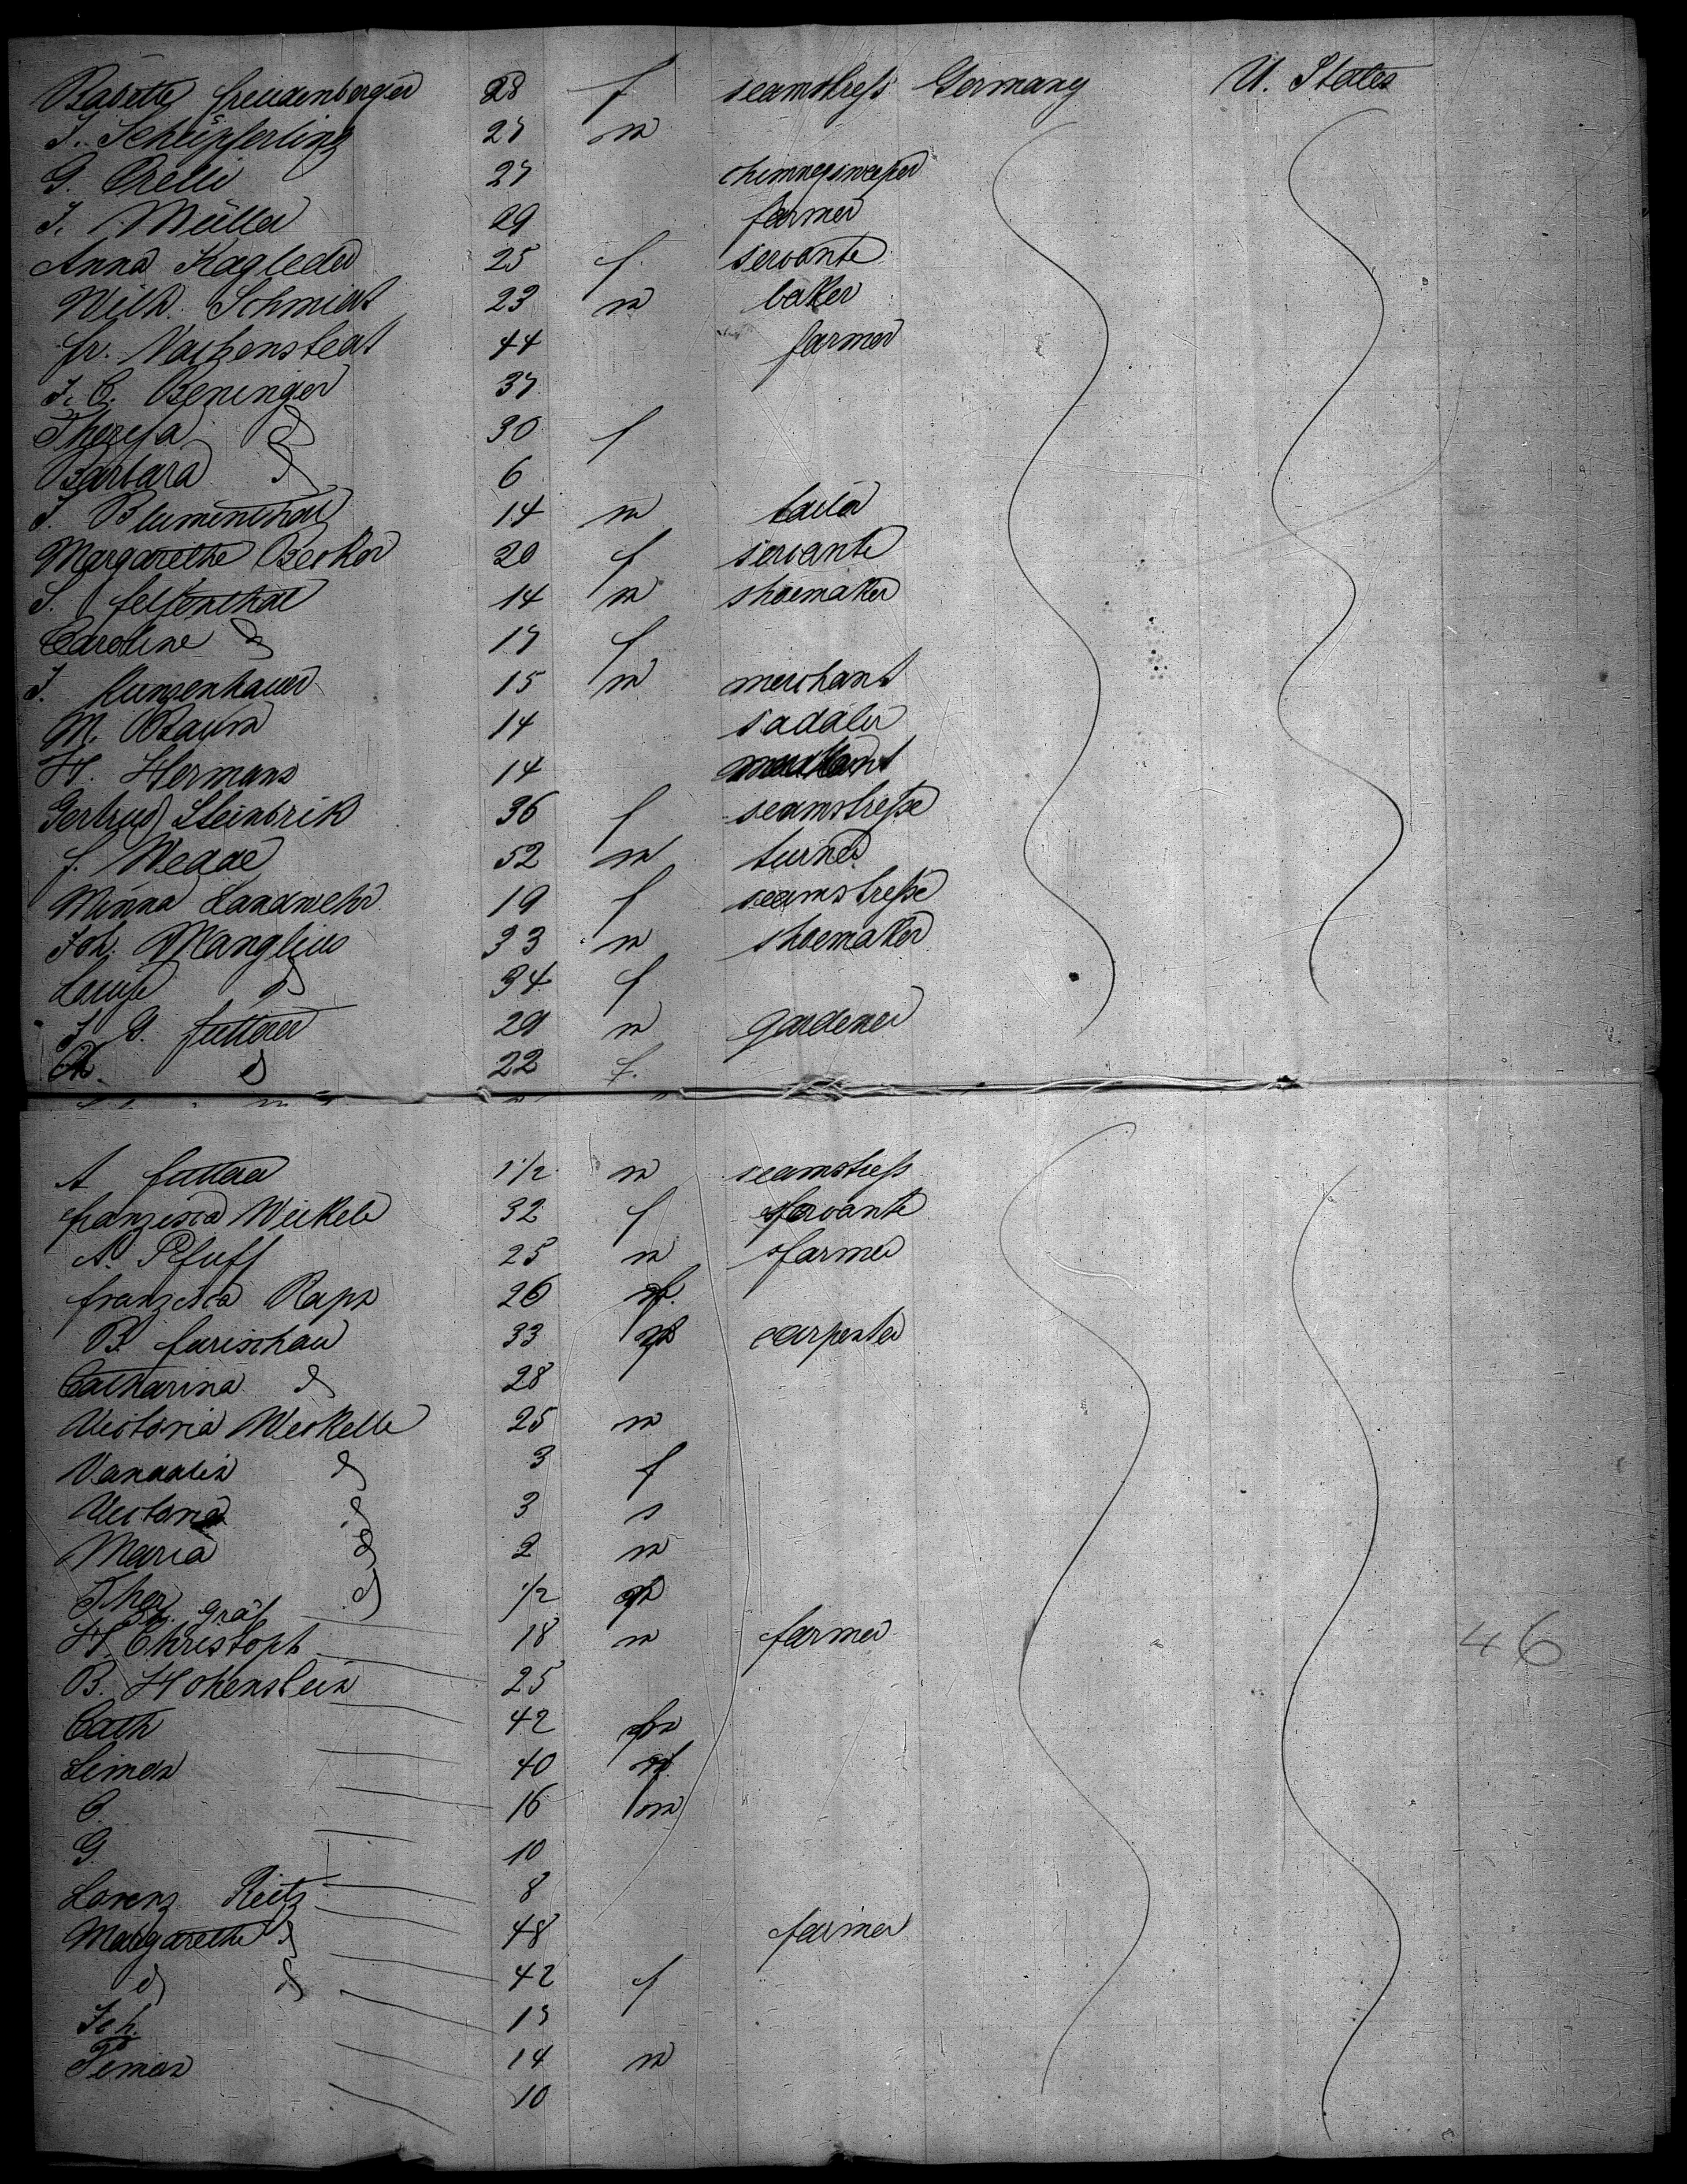 Babette Freudenberger 28 f seamstress Germany U. States
J. Schüpferling 27 m
G. Orelli 27 chimneysweeper
J. Müller 29 farmer
Anna Kagleder 25 f servante
Wilh. Schmidt 23 m baker
Fr. Vachenstedt 44 farmer
J. C. Beninger 37
Theresa d 30 f
Barbara d 6
J. Blumenthal 14 m tailor
Margarethe Becker 20 f servante
S. Felsenthal 14 m shoemaker
Caroline d 17 f
J. Kunzenhauer 15 m merchant
M. Baum 14 saddler
H. Hermans 14
Gertrud Steinbrik 36 f seamstresse
F. Wedde 52 m turner
Minna Landwehr 19 f seamstresse
Joh. Manglius 33 m shoemaker
Louise d 34 f
J. G. Futterer 29 m gardener
d 22 f.
A Futterer 1 1/2 m seamstress
Franzisca Weikele 32 f servante
A. Pfuff 25 m farmer
Franzisca Raps 26 f.
B. Furischau 33 carpenter
Catharina d 28
Victoria Weckelle 25 m
Vandalin d 3 f
Victoria d 3
Maria d 2 m
Ther. d 1/2
Gräf
H. Christoph 18 m farmer
B. Hohenstein 25
Cath 42
Simon 40
C. 16 m
G. 10
Lorenz Reitz 8
Margarethe d 48 farmer
d d 42 f
Joh. 17
14 m
10
46